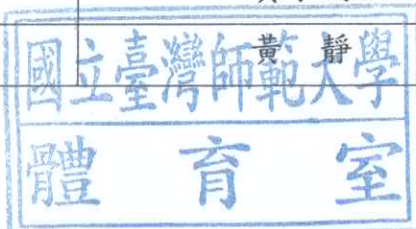 國立臺灣師範大學
黃靜
體育室